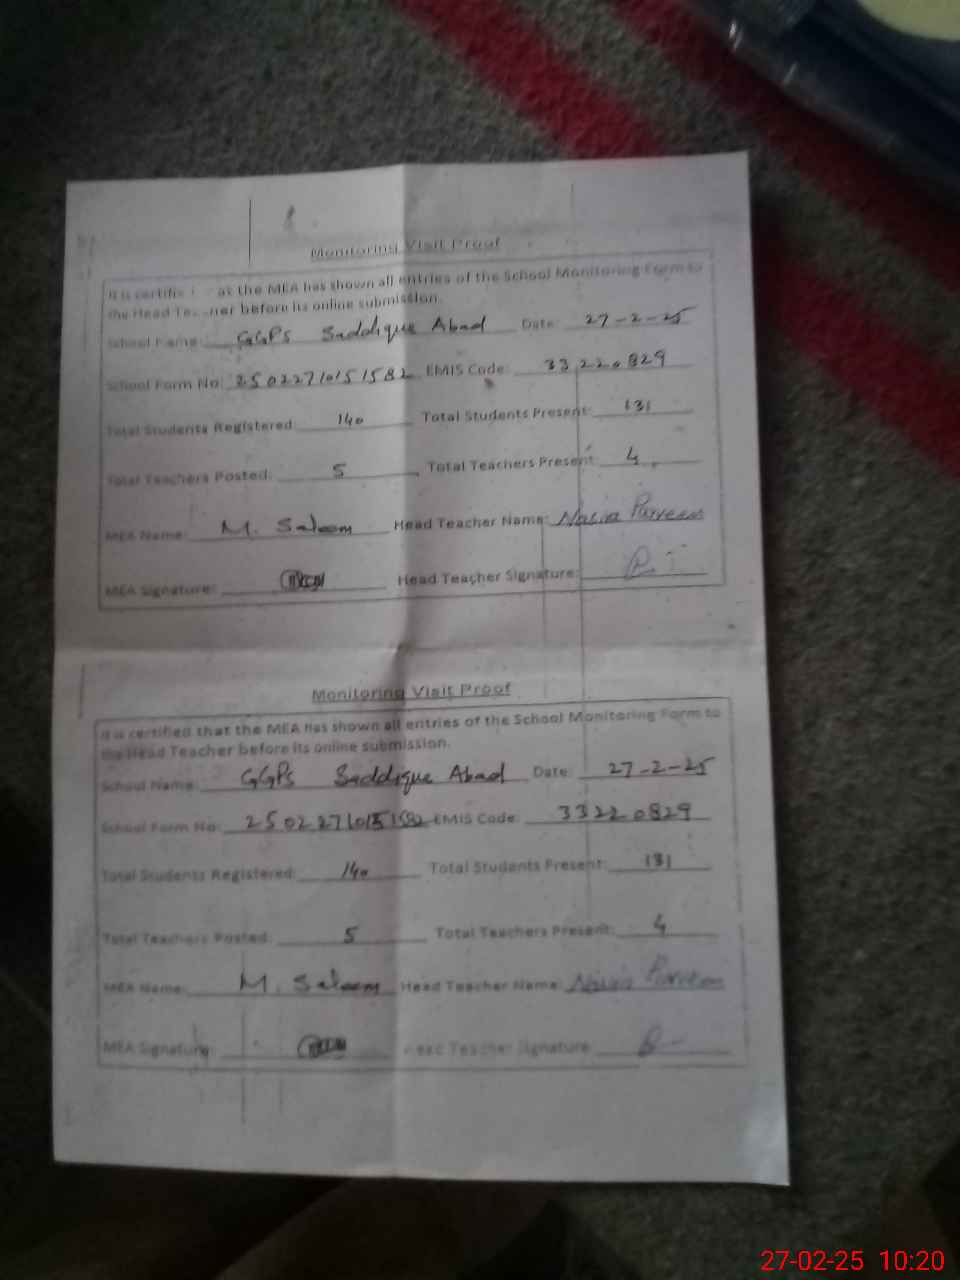 Monitoring Visit Proof
It is certified at the MEA has shown all entries of the School Monitoring Form to
the Head Teacher before its online submission.
School Name: GGPS Saddique Abad Date: 27-2-25
School Form No: 25022710151582 EMIS Code: 33220829
Total Students Registered: 140 Total Students Present: 131
Total Teachers Posted: 5 Total Teachers Present: 4
MEA Name: M. Saleem Head Teacher Name: Parveen
MEA Signature: Head Teacher Signature:
Monitoring Visit Proof
It is certified that the MEA has shown all entries of the School Monitoring Form to
the Head Teacher before its online submission.
School Name: GGPS Saddique Abad Date: 27-2-25
School Form No: 25022710151582 EMIS Code: 33220829
Total Students Registered: 140 Total Students Present: 131
Total Teachers Posted: 5 Total Teachers Present: 4
MEA Name: M. Saleem Head Teacher Name: Parveen
MEA Signature: Teacher Signature:
27-02-25 10:20